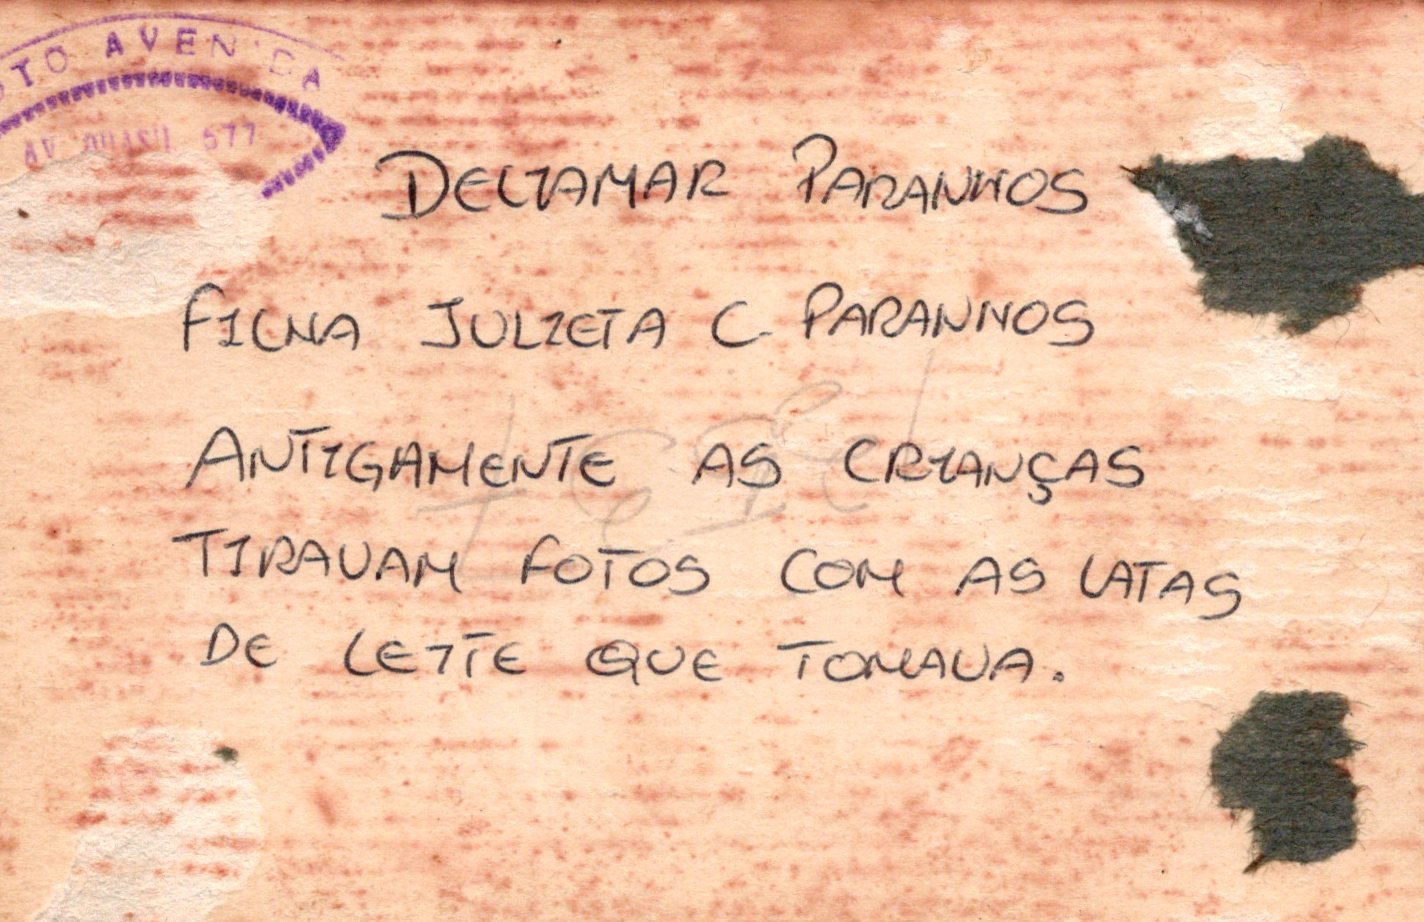 OTO AVENIDA
AV. BRASIL 577
DELIAMAR PARANHOS
FILHA JULIETA C PARANHOS
ANTIGAMENTE AS CRIANÇAS
TIRAVAM FOTOS COM AS LATAS
DE LEITE QUE TOMAVA.